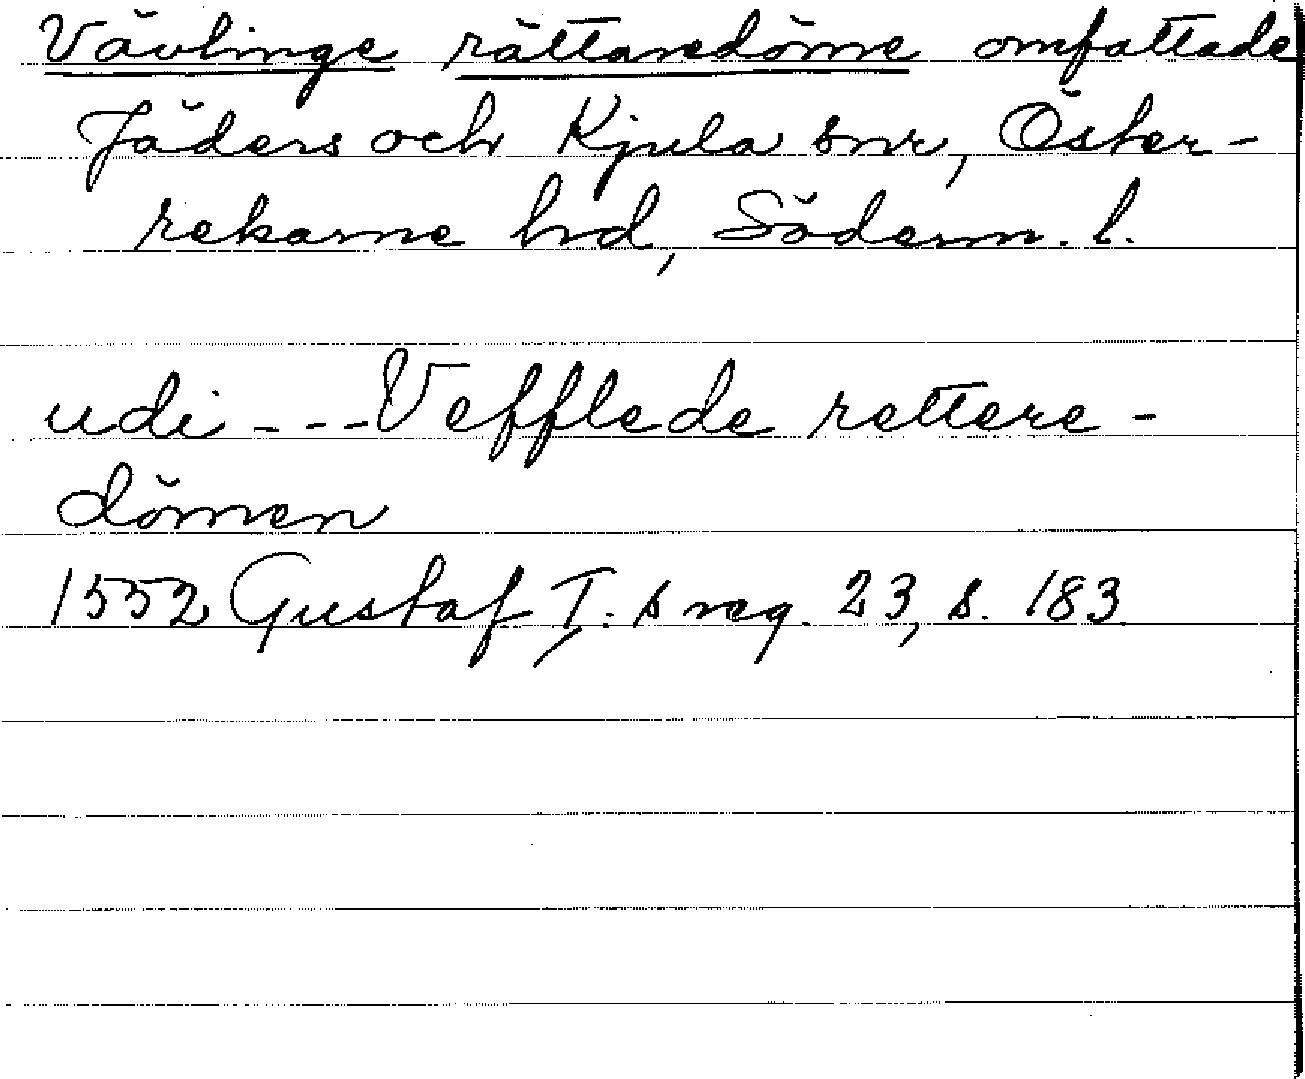 Vävlinge rättaredöme omfattade
Jäders och Kjula snr, Öster-
rekarne hd, Söderm. l.
udi - - - Vefflede rettere-
dömen
1552 Gustaf I: s reg. 23, s. 183.